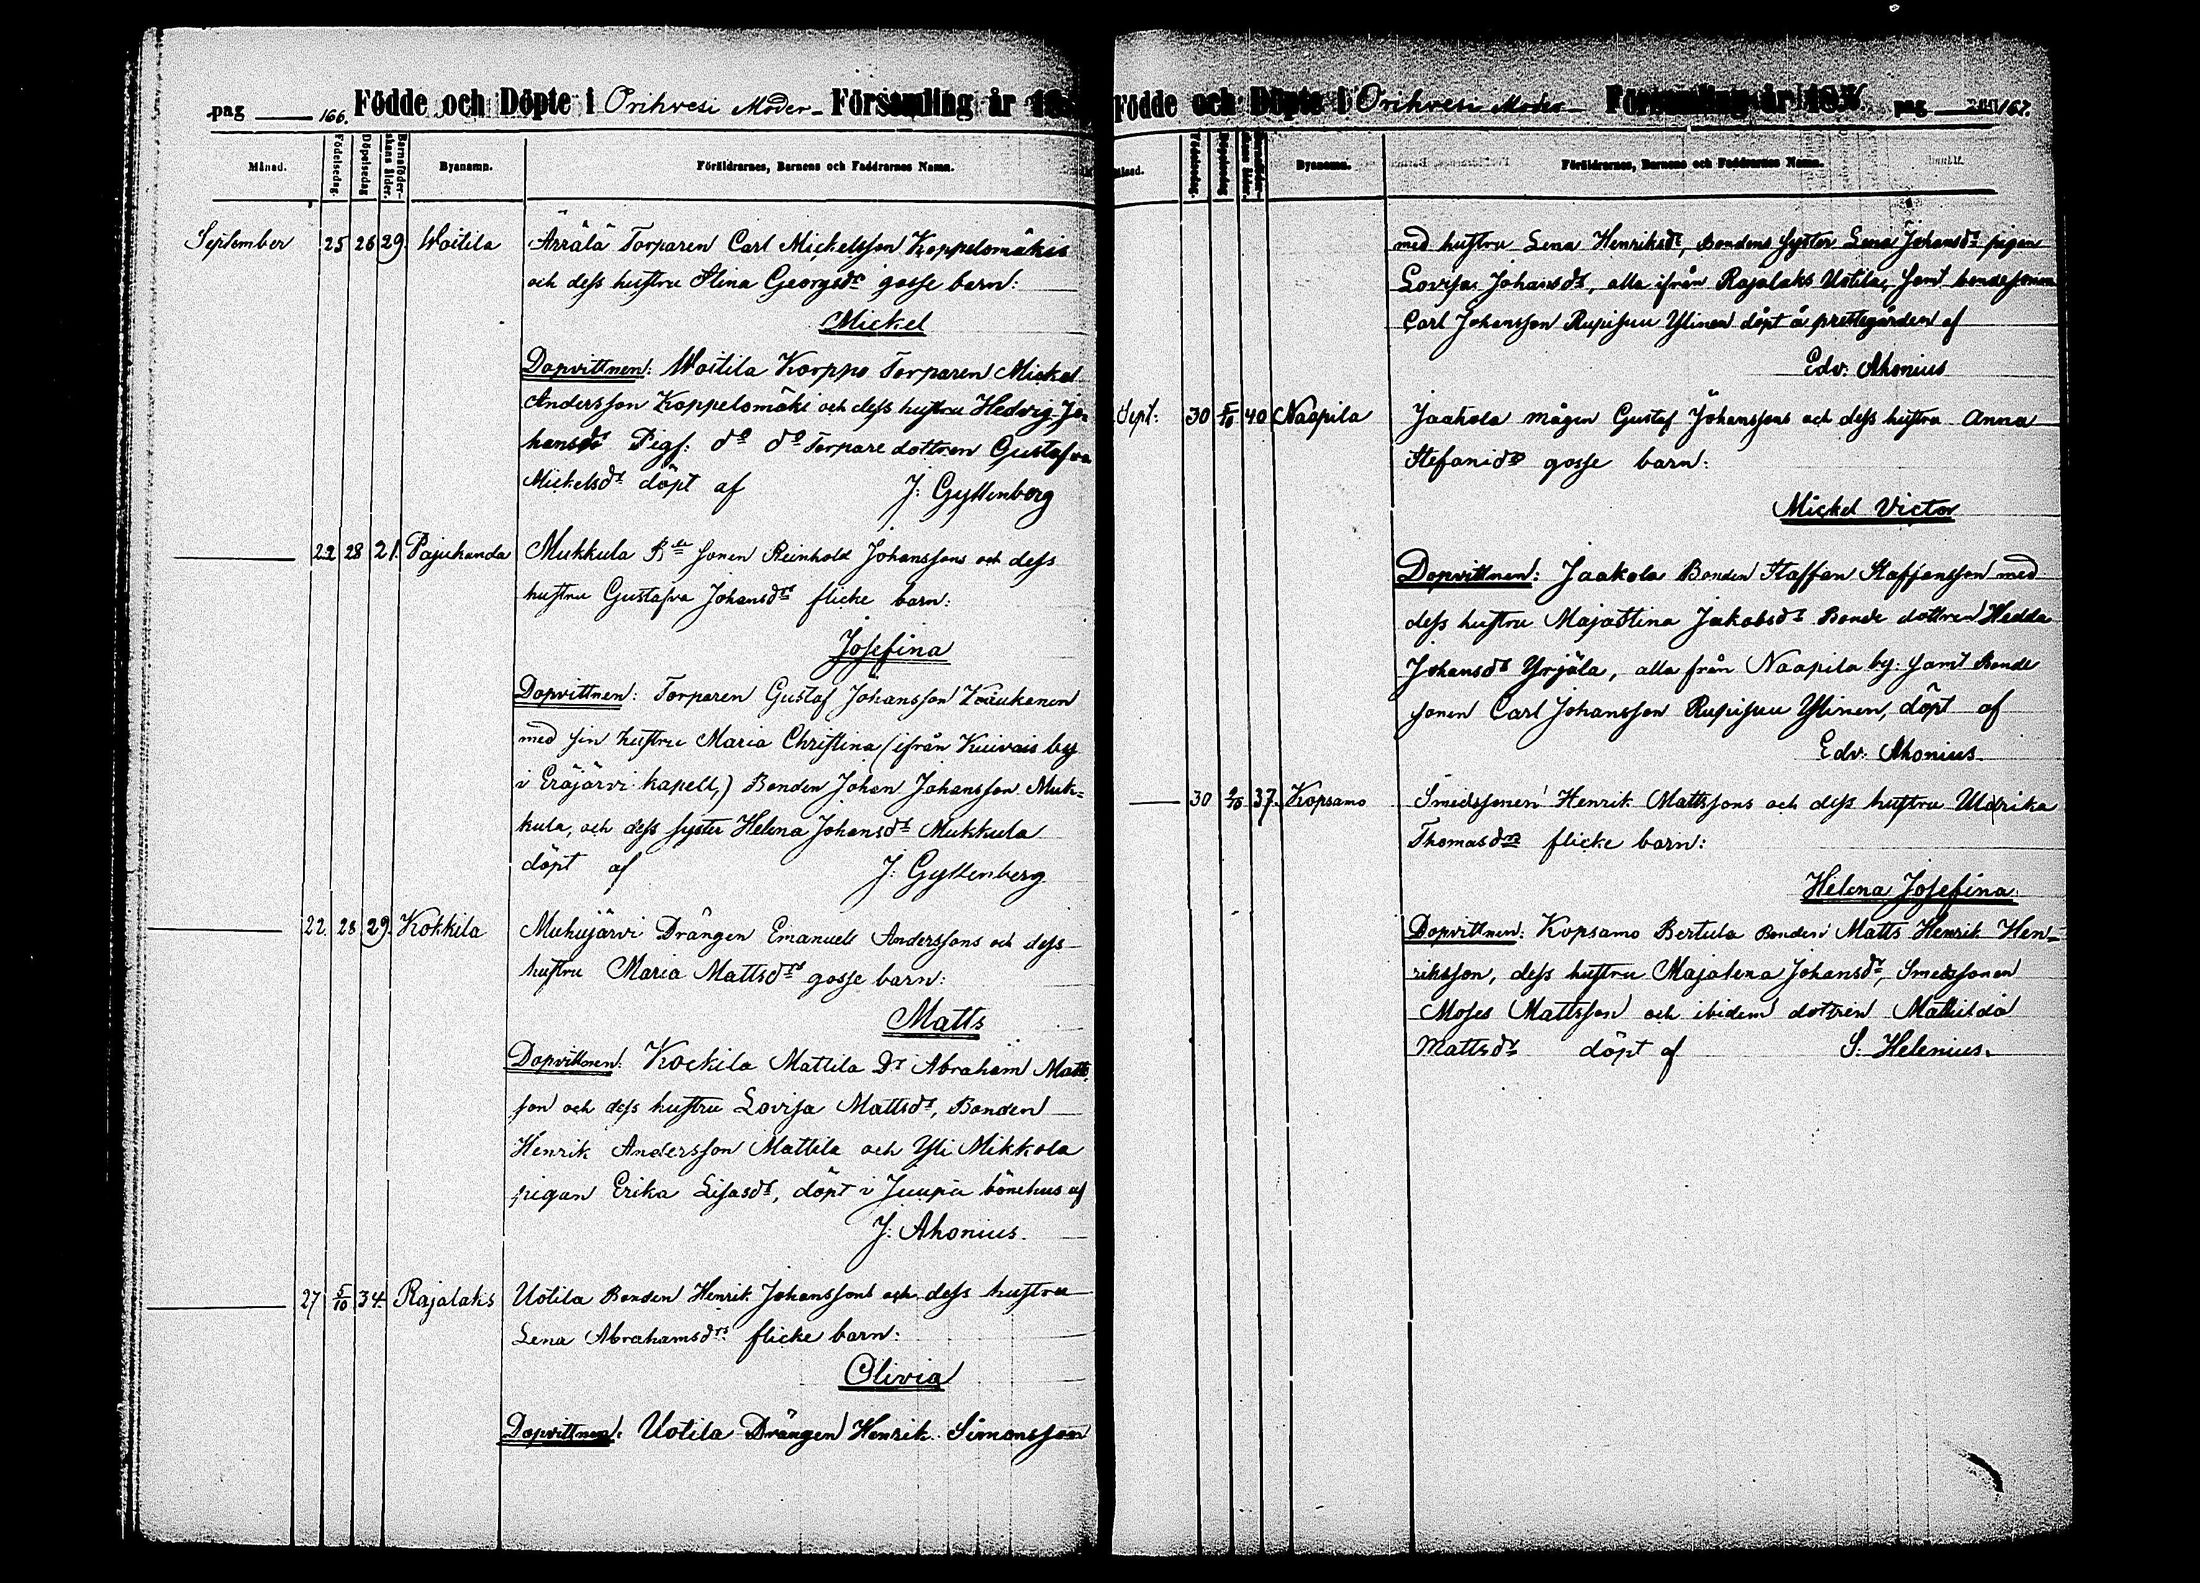 pag 166. Födde och Döpte i Orihvesi Moder- Församling år 18
Månad. Födelsedag. Döpelsedag. Barnaföderskans ålder. Byanamn. Föräldrarnes, Barnens och Faddrarnes Namn.
September 25 26 29 Woitila Ärrälä Torparen Carl Mickelsson Koppelomäkis
och dess hustru Stina Georgsdrs gosse barn:
Mickel
Dopvittnen: Woitila Korppo Torparen Mickel
Andersson Koppelomäki och dess hustru Hedvig Jo-
hansdr Pigf: do do Torpare dottren Gustafva
Mickelsdr döpt af J: Gyllenberg
22 28 21. Pajukanda Mukkula Bde sonen Reinhold Johanssons och dess
hustru Gustafva Johansdrs flicke barn:
Josefina
Dopvittnen: Torparen Gustaf Johansson Kaukanen
med sin hustru Maria Christina (ifrån Kuivais by
i Eräjärvi kapell,) Bonden Johan Johansson Muk-
kula, och dess syster Helena Johansdr Mukkula
döpt af J: Gyllenberg
22. 28 29. Kokkila Muhujärvi Drängen Emanuels Anderssons och dess
hustru Maria Mattsdrs gosse barn:
Matts
Dopvittnen: Kockila Mattila Dr Abraham Matts
son och dess hustru Lovisa Mattsdr, Bonden
Henrik Andersson Mattila och Yli Mikkola
pigan Erika Lisasdr, döpt i Juupa bönehus af
J: Ahonius.
27 5/10 34. Rajalaks Uotila Bonden Henrik Johanssons och dess hustru
Lena Abrahamsdrs flicke barn:
Olivia
Dopvittnen: Uotila Drängen Henrik Simonsson
Födde och Döpte i Orihvesi Moder- Församling år 18 pag 167.
Födelsedag. Döpelsedag. Byanamn. Föräldrarnes, Barnens och Faddrarnes Namn.
med hustru Lena Henriksdr, Bondens syster Lena Johansdr pigan
Lovisa Johansdr, alla ifrån Rajalaks Uotila, samt bondesonen
Carl Johansson Rupisuu Ylinen döpt å prestegården af
Edv: Ahonius
Sept: 30 5/10 40 Naapila Jaakola mågen Gustaf Johanssons och dess hustru Anna
Stefansdrs gosse barn:
Mickel Victor
Dopvittnen: Jaakola Bonden Staffan Staffansson med
dess hustru Maja Stina Jakobsdr Bonde dottren Hedda
Johansdr Yrjälä, alla från Naapila by. samt Bonde
sonen Carl Johansson Rupisuu Ylinen, döpt af
Edv: Ahonius.
30 2/10 37. Kopsamo Smedssonen Henrik Mattssons och dess hustru Uldrika
Thomasdrs flicke barn:
Helena Josefina.
Dopvittnen: Kopsamo Bertula Bonden Matts Henrik Hen-
riksson, dess hustru Majalena Johansdr, Smedssonen
Moses Mattsson och ibidem dottren Mathilda
Mattsdr döpt af S. Helenius.